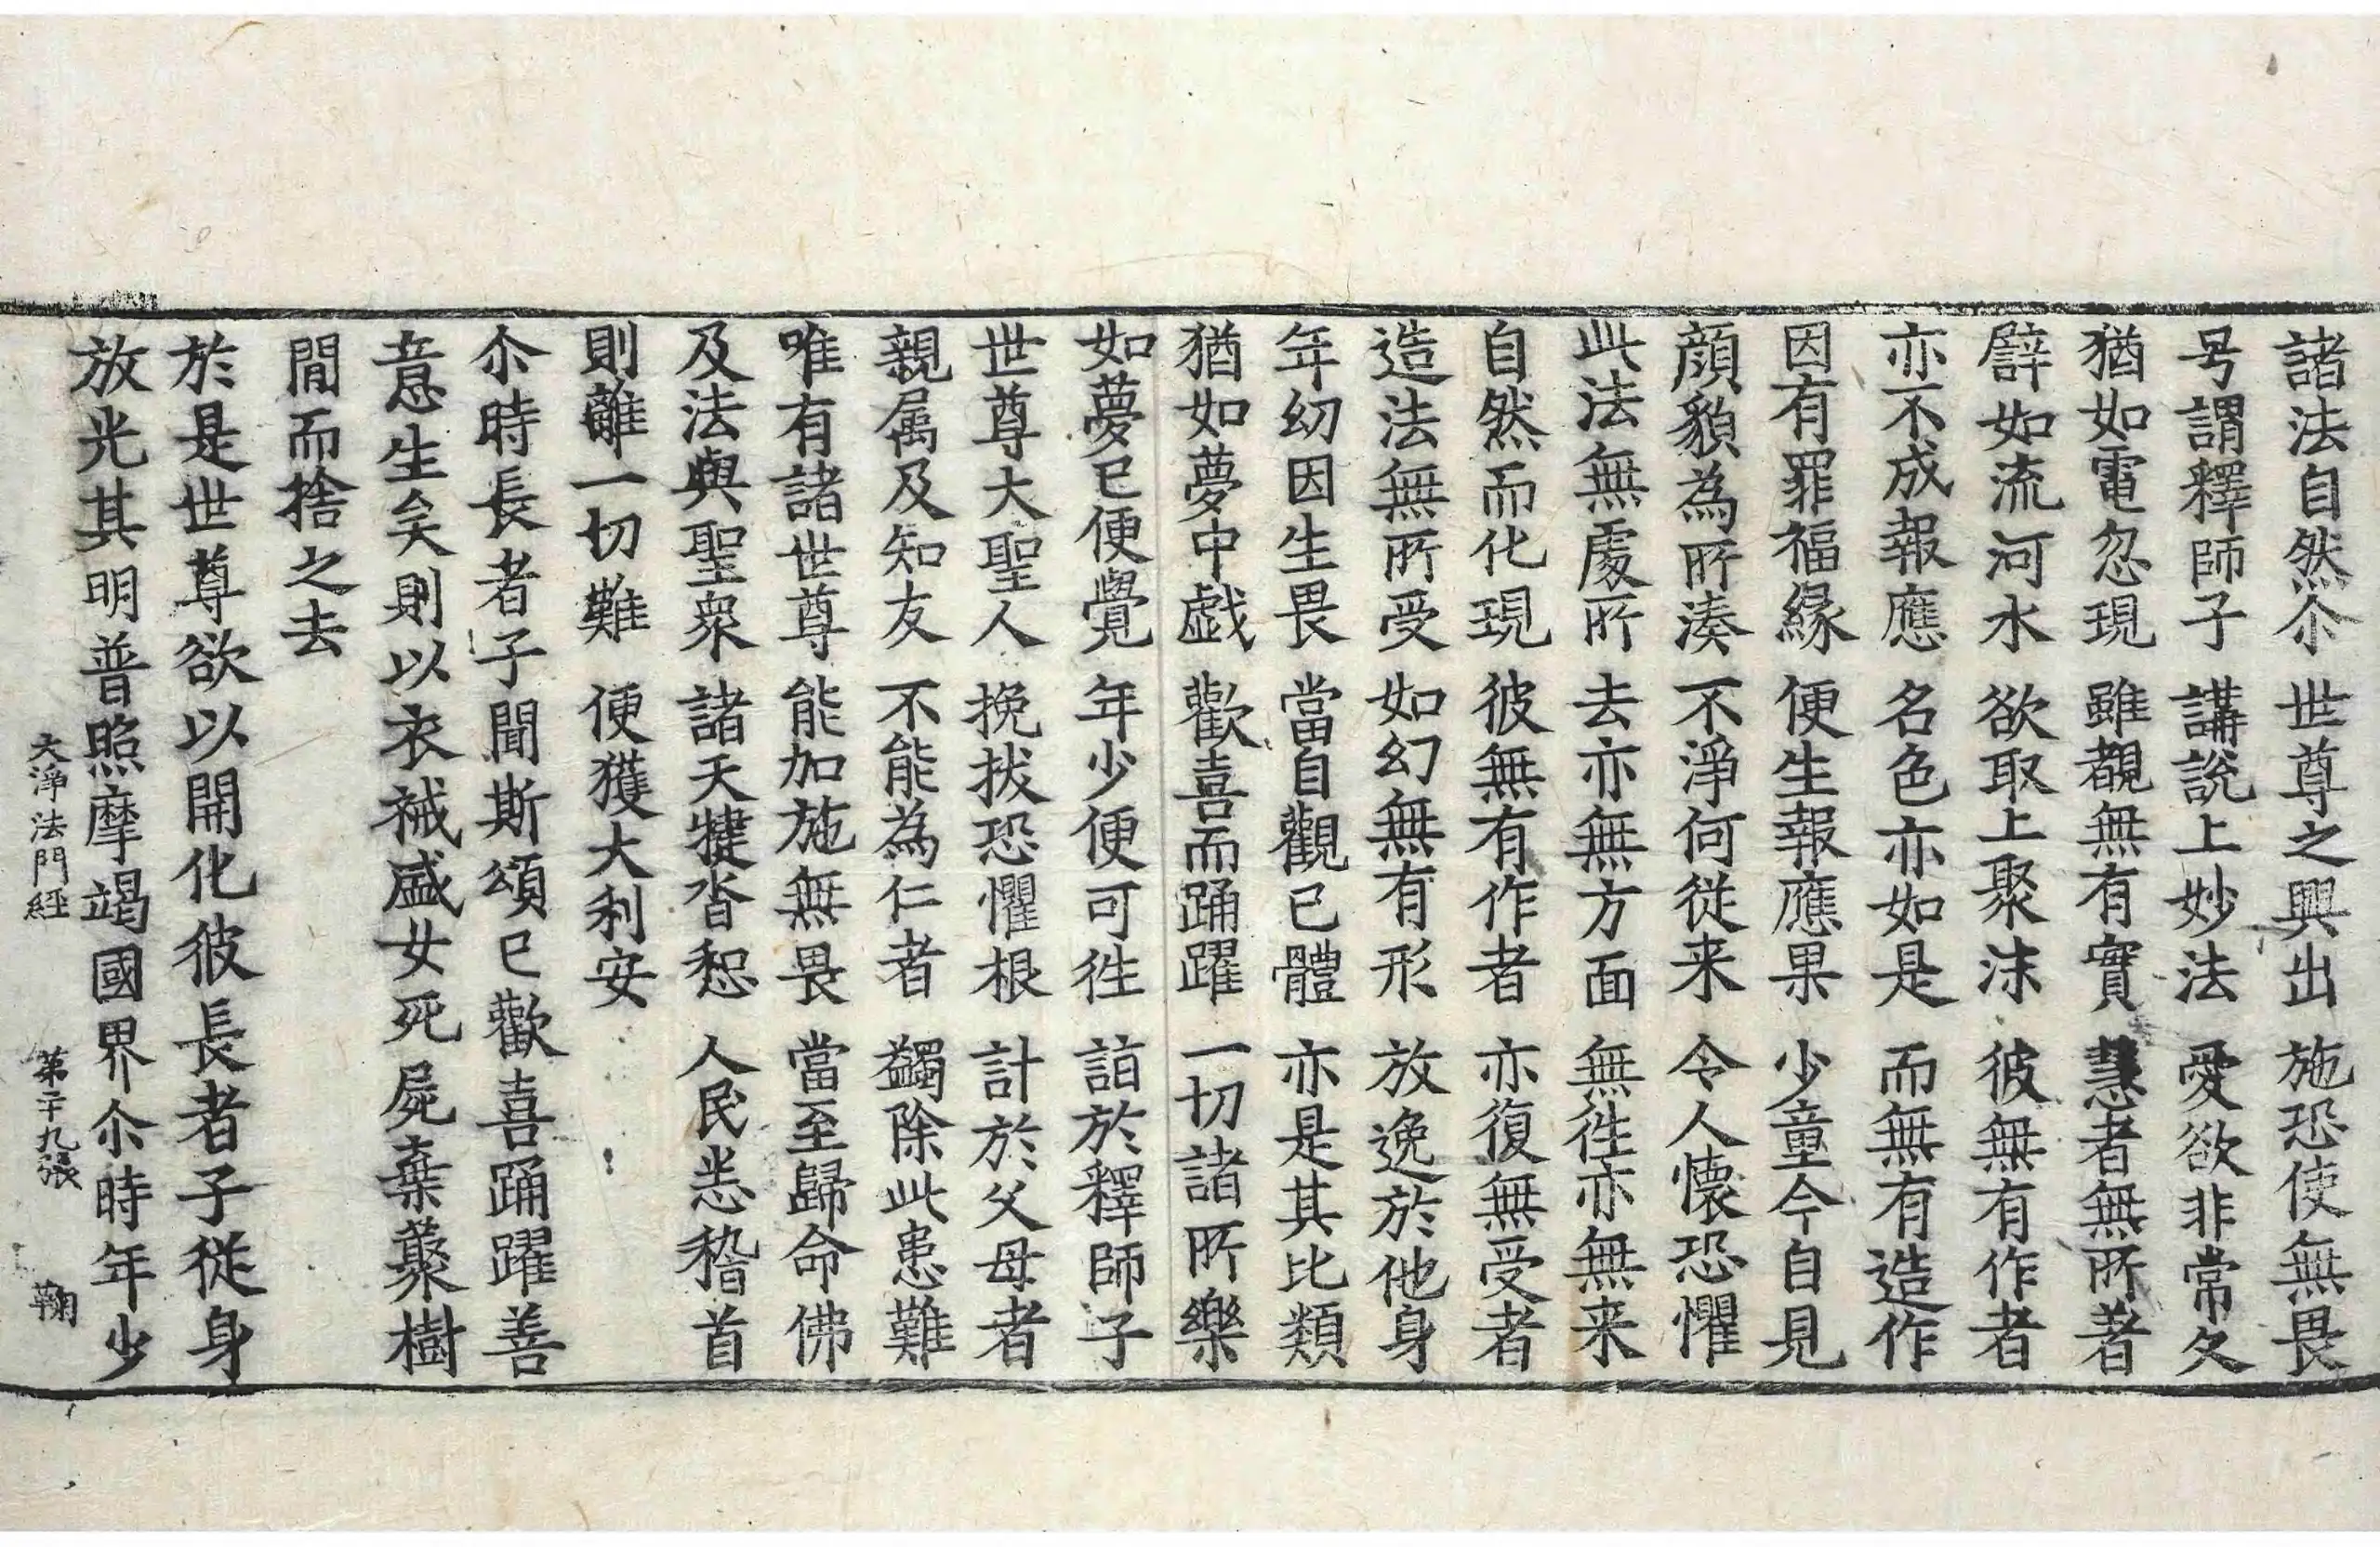 諸法自然尒 世尊之興出 施恐使無畏
号謂釋師子 講說上妙法 愛欲非常久
猶如電忽現 雖覩無有實 慧者無所著
譬如流河水 欲取上聚沫 彼無有作者
亦不成報應 名色亦如是 而無有造作
因有罪福緣 便生報應果 少童今自見
顔貌為所湊 不淨何從来 令人懷恐懼
此法無處所 去亦無方面 無徃亦無来
自然而化現 彼無有作者 亦復無受者
造法無所受 如幻無有形 放逸於他身
年幼因生畏 當自觀己體 亦是其比類
猶如夢中戱 歡喜而踊躍 一切諸所樂
如夢已便覺 年少便可徃 詣於釋師子
世尊大聖人 挽拔恐懼根 計於父母者
親属及知友 不能為仁者 蠲除此患難
唯有諸世尊 能加施無畏 當至歸命佛
及法與聖衆 諸天揵沓惒 人民悉稽首
則離一切難 便獲大利安
尒時長者子聞斯頌已歡喜踊躍善
意生矣則以衣裓盛女死屍棄叢樹
間而捨之去
於是世尊欲以開化彼長者子從身
放光其明普照摩竭國界尒時年少
大淨法門經 第二十九張 鞠